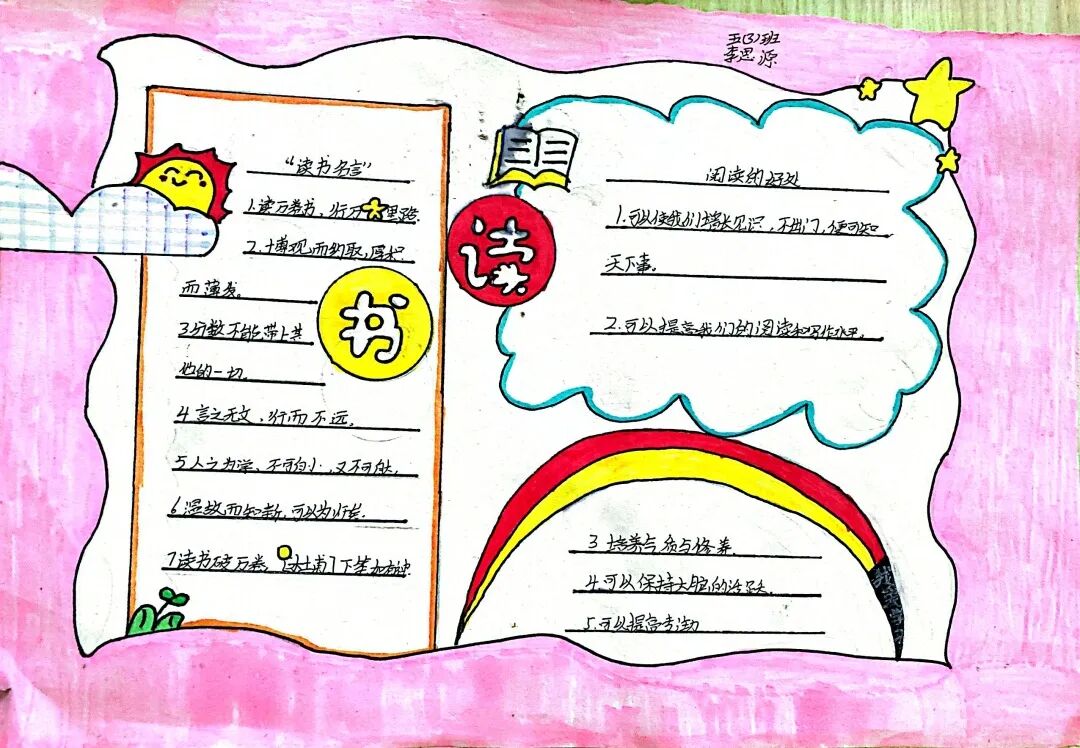 五(3)班
李思源
“读书名言”
1.读万卷书,行万里路.
2.博观而约取,厚积
而薄发。
3分数不能带上其
他的一切.
4言之无文,行而不远.
5人之为学,不可自小,又不可自大.
6温故而知新,可以为师矣.
7读书破万卷,下笔如有神
书
读
阅读的好处
1.可以使我们增长见识,不出门,便可知
天下事。
2.可以提高我们的阅读和写作水平。
3 培养气质与修养.
4.可以保持大脑的活跃.
5.可以提高专注力